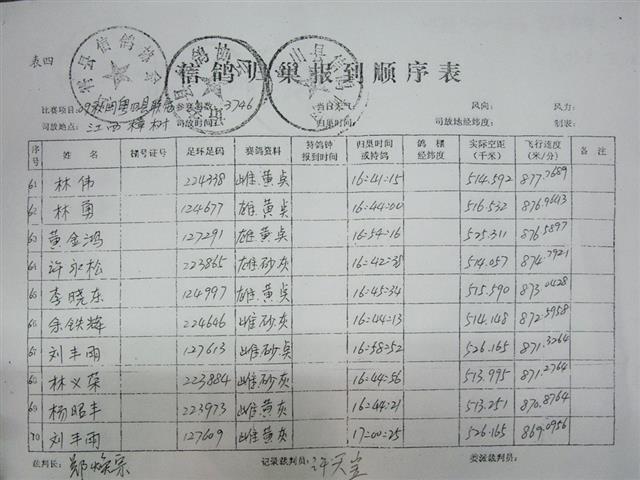 表四
信鸽归巢报到顺序表
比赛项目: 参赛羽数: 3746 当日天气: 风向: 风力:
司放地点: 江西樟树 司放时间: 归巢时间: 司放地经纬度: 制表:
序号 姓名 棚号证号 足环足码 赛鸽资料 持鸽钟报到时间 归巢时间或持鸽 鸽棚经纬度 实际空距(千米) 飞行速度(米/分) 备注
61 林伟 224338 雌.黄.点 16:41:15 514.592 877.7689
62 林勇 124677 雄.黄点 16:44:00 516.532 876.9613
63 黄金鸿 127291 雄.黄点 16:54:16 525.311 876.5897
64 许永松 223865 雄.砂.灰 16:42:38 514.057 874.7921
65 李晓东 124997 雄.黄点 16:45:34 515.590 873.0428
66 余铁辉 224646 雌.砂.灰 16:44:13 514.148 872.5958
67 刘丰雨 127613 雌砂点 16:58:52 526.165 871.3264
68 林义荣 223884 雌砂灰 16:44:56 513.995 871.2764
69 杨昭丰 223973 雌黄灰 16:44:21 513.251 870.8764
70 刘丰雨 127609 雌.黄点 17:00:25 526.165 869.0956
裁判长: 记录裁判员: 许天 委派裁判员: